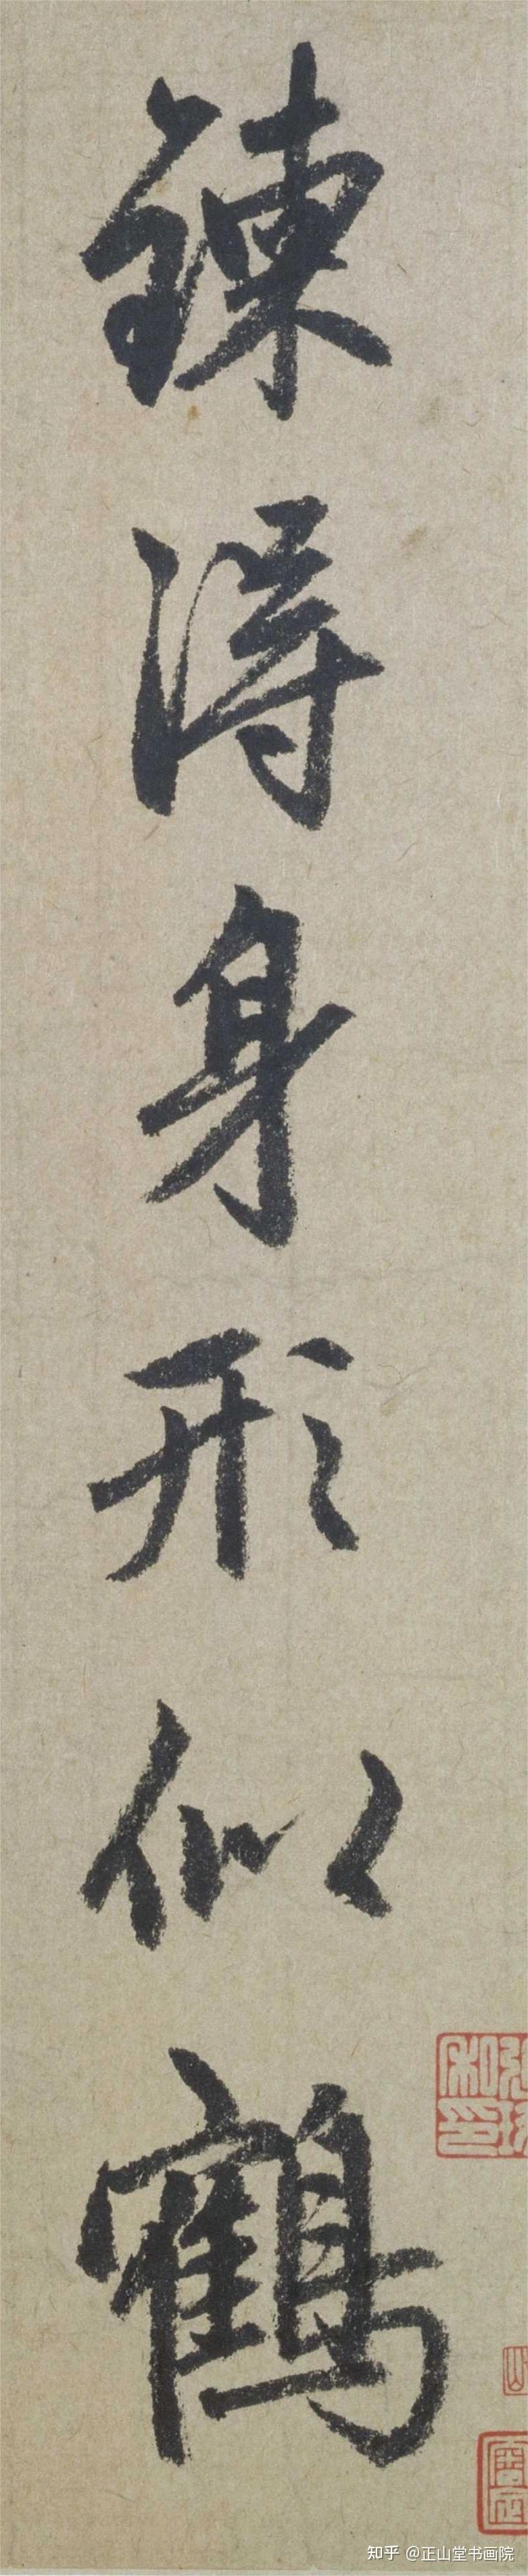 鍊得身形似鶴
知乎 @正山堂书画院